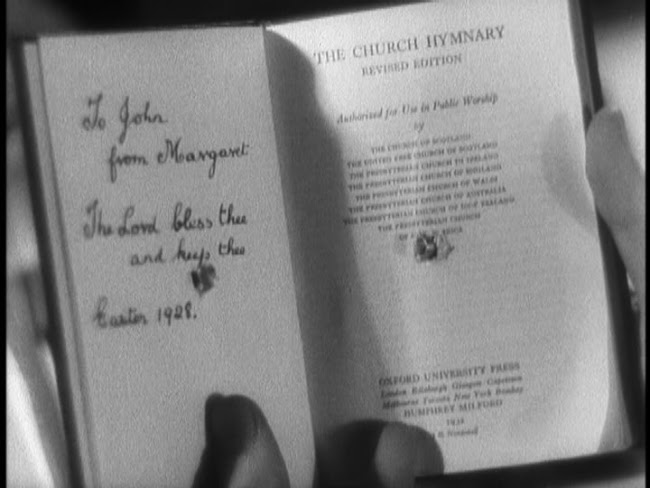 To John
from Margaret
The Lord bless thee
and keep thee
Easter 1928.
THE CHURCH HYMNARY
REVISED EDITION
Authorized for Use in Public Worship
by
THE CHURCH OF SCOTLAND
THE UNITED FREE CHURCH OF SCOTLAND
THE PRESBYTERIAN CHURCH IN IRELAND
THE PRESBYTERIAN CHURCH OF ENGLAND
THE PRESBYTERIAN CHURCH OF WALES
THE PRESBYTERIAN CHURCH OF AUSTRALIA
THE PRESBYTERIAN CHURCH OF NEW ZEALAND
THE PRESBYTERIAN CHURCH
OF
OXFORD UNIVERSITY PRESS
London Edinburgh Glasgow Capetown
Melbourne Toronto New York Bombay
HUMPHREY MILFORD